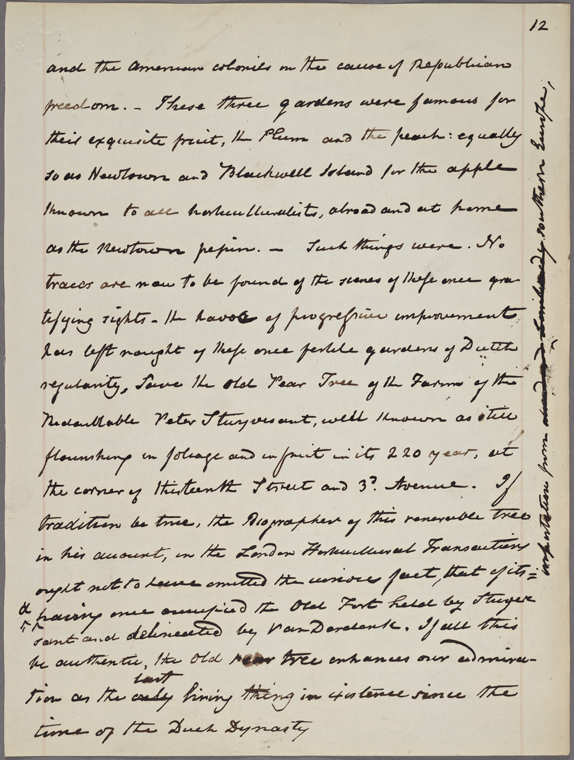 12
and the American colonies in the cause of Republican
freedom. - These three gardens were famous for
their exquisite fruit, the Plum and the peach: equally
so as Newtown and Blackwell Island for the apple
known to all horticulturalists, abroad and at home
as the Newtown pepin. - Such things were. No
traces are now to be found of the scenes of these once gra
tifying sights - the havoc of progressive improvement
has left naught of these once fertile gardens of Dutch
regularity, save the old Pear Tree of the Farm of the
Redoubtable Peter Stuyvesant, well known as still
flourishing in foliage and in fruit in its 220 year, at
the corner of thirteenth Street and 3d. Avenue. If
tradition be true, the Biographer of this venerable tree
in his account, in the London Horticultural Transactions
ought not to have omitted the curious fact, that of its =
having once occupied the Old Fort held by Stuyve
sant and delineated by VanDerdonk. If all this
be authentic, the old pear tree enhances our admira-
last
tion as the only living thing in existence since the
time of the Duch Dynasty
importation from southern Europe,